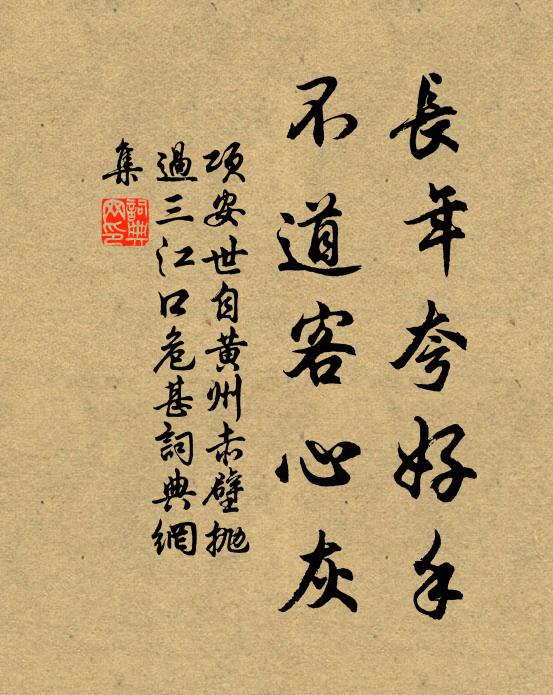 長年夸好手
不道客心灰
項安世自黃州赤壁拋
過三江口危甚詞典網
集
詞典
网印